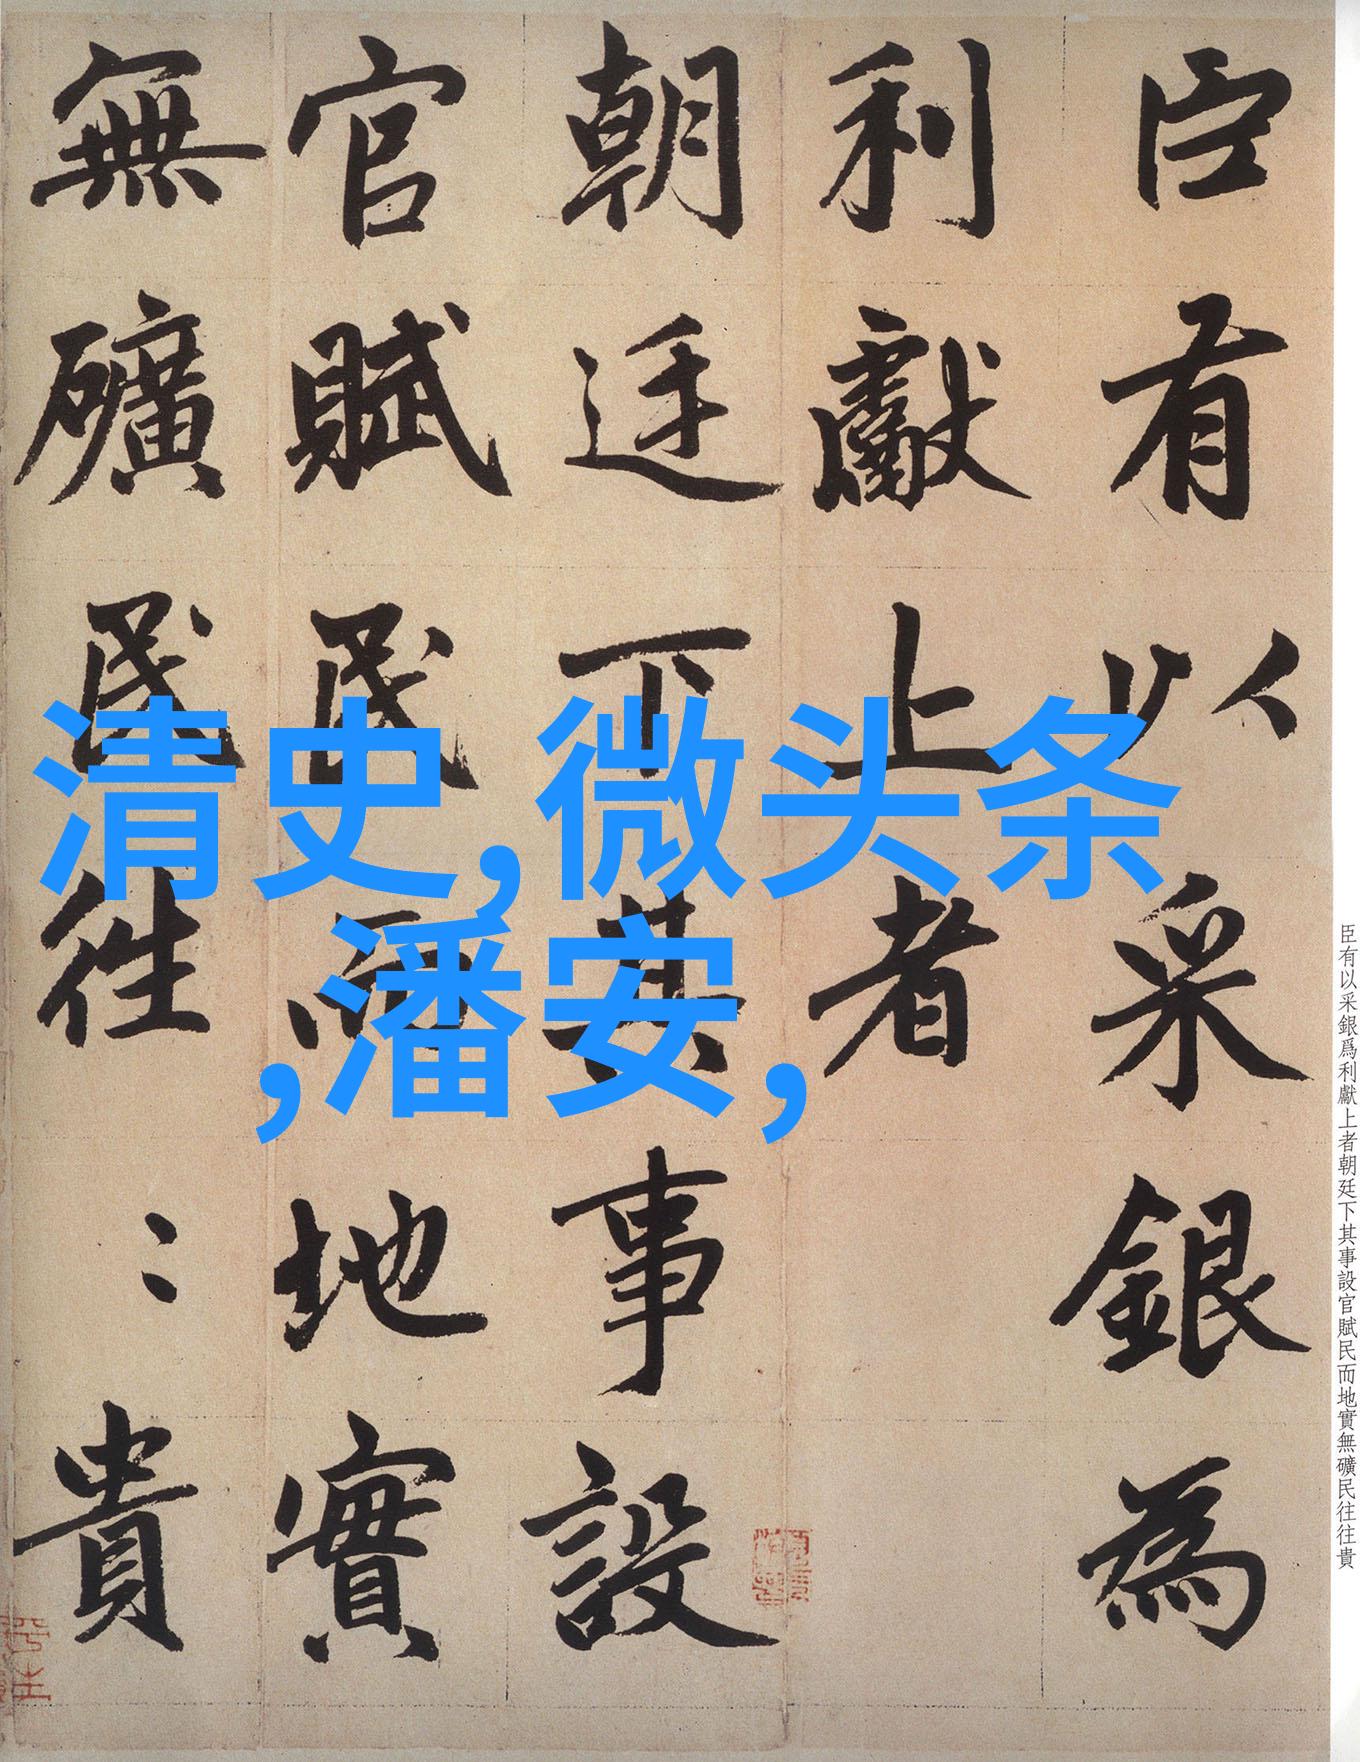 臣有以采銀為
利獻上者
朝廷下其事設
官賦民而地實
無礦民往〻貴
清史,微头条
,潘安,
臣有以采銀爲利獻上者朝廷下其事設官賦民而地實無礦民往往貴